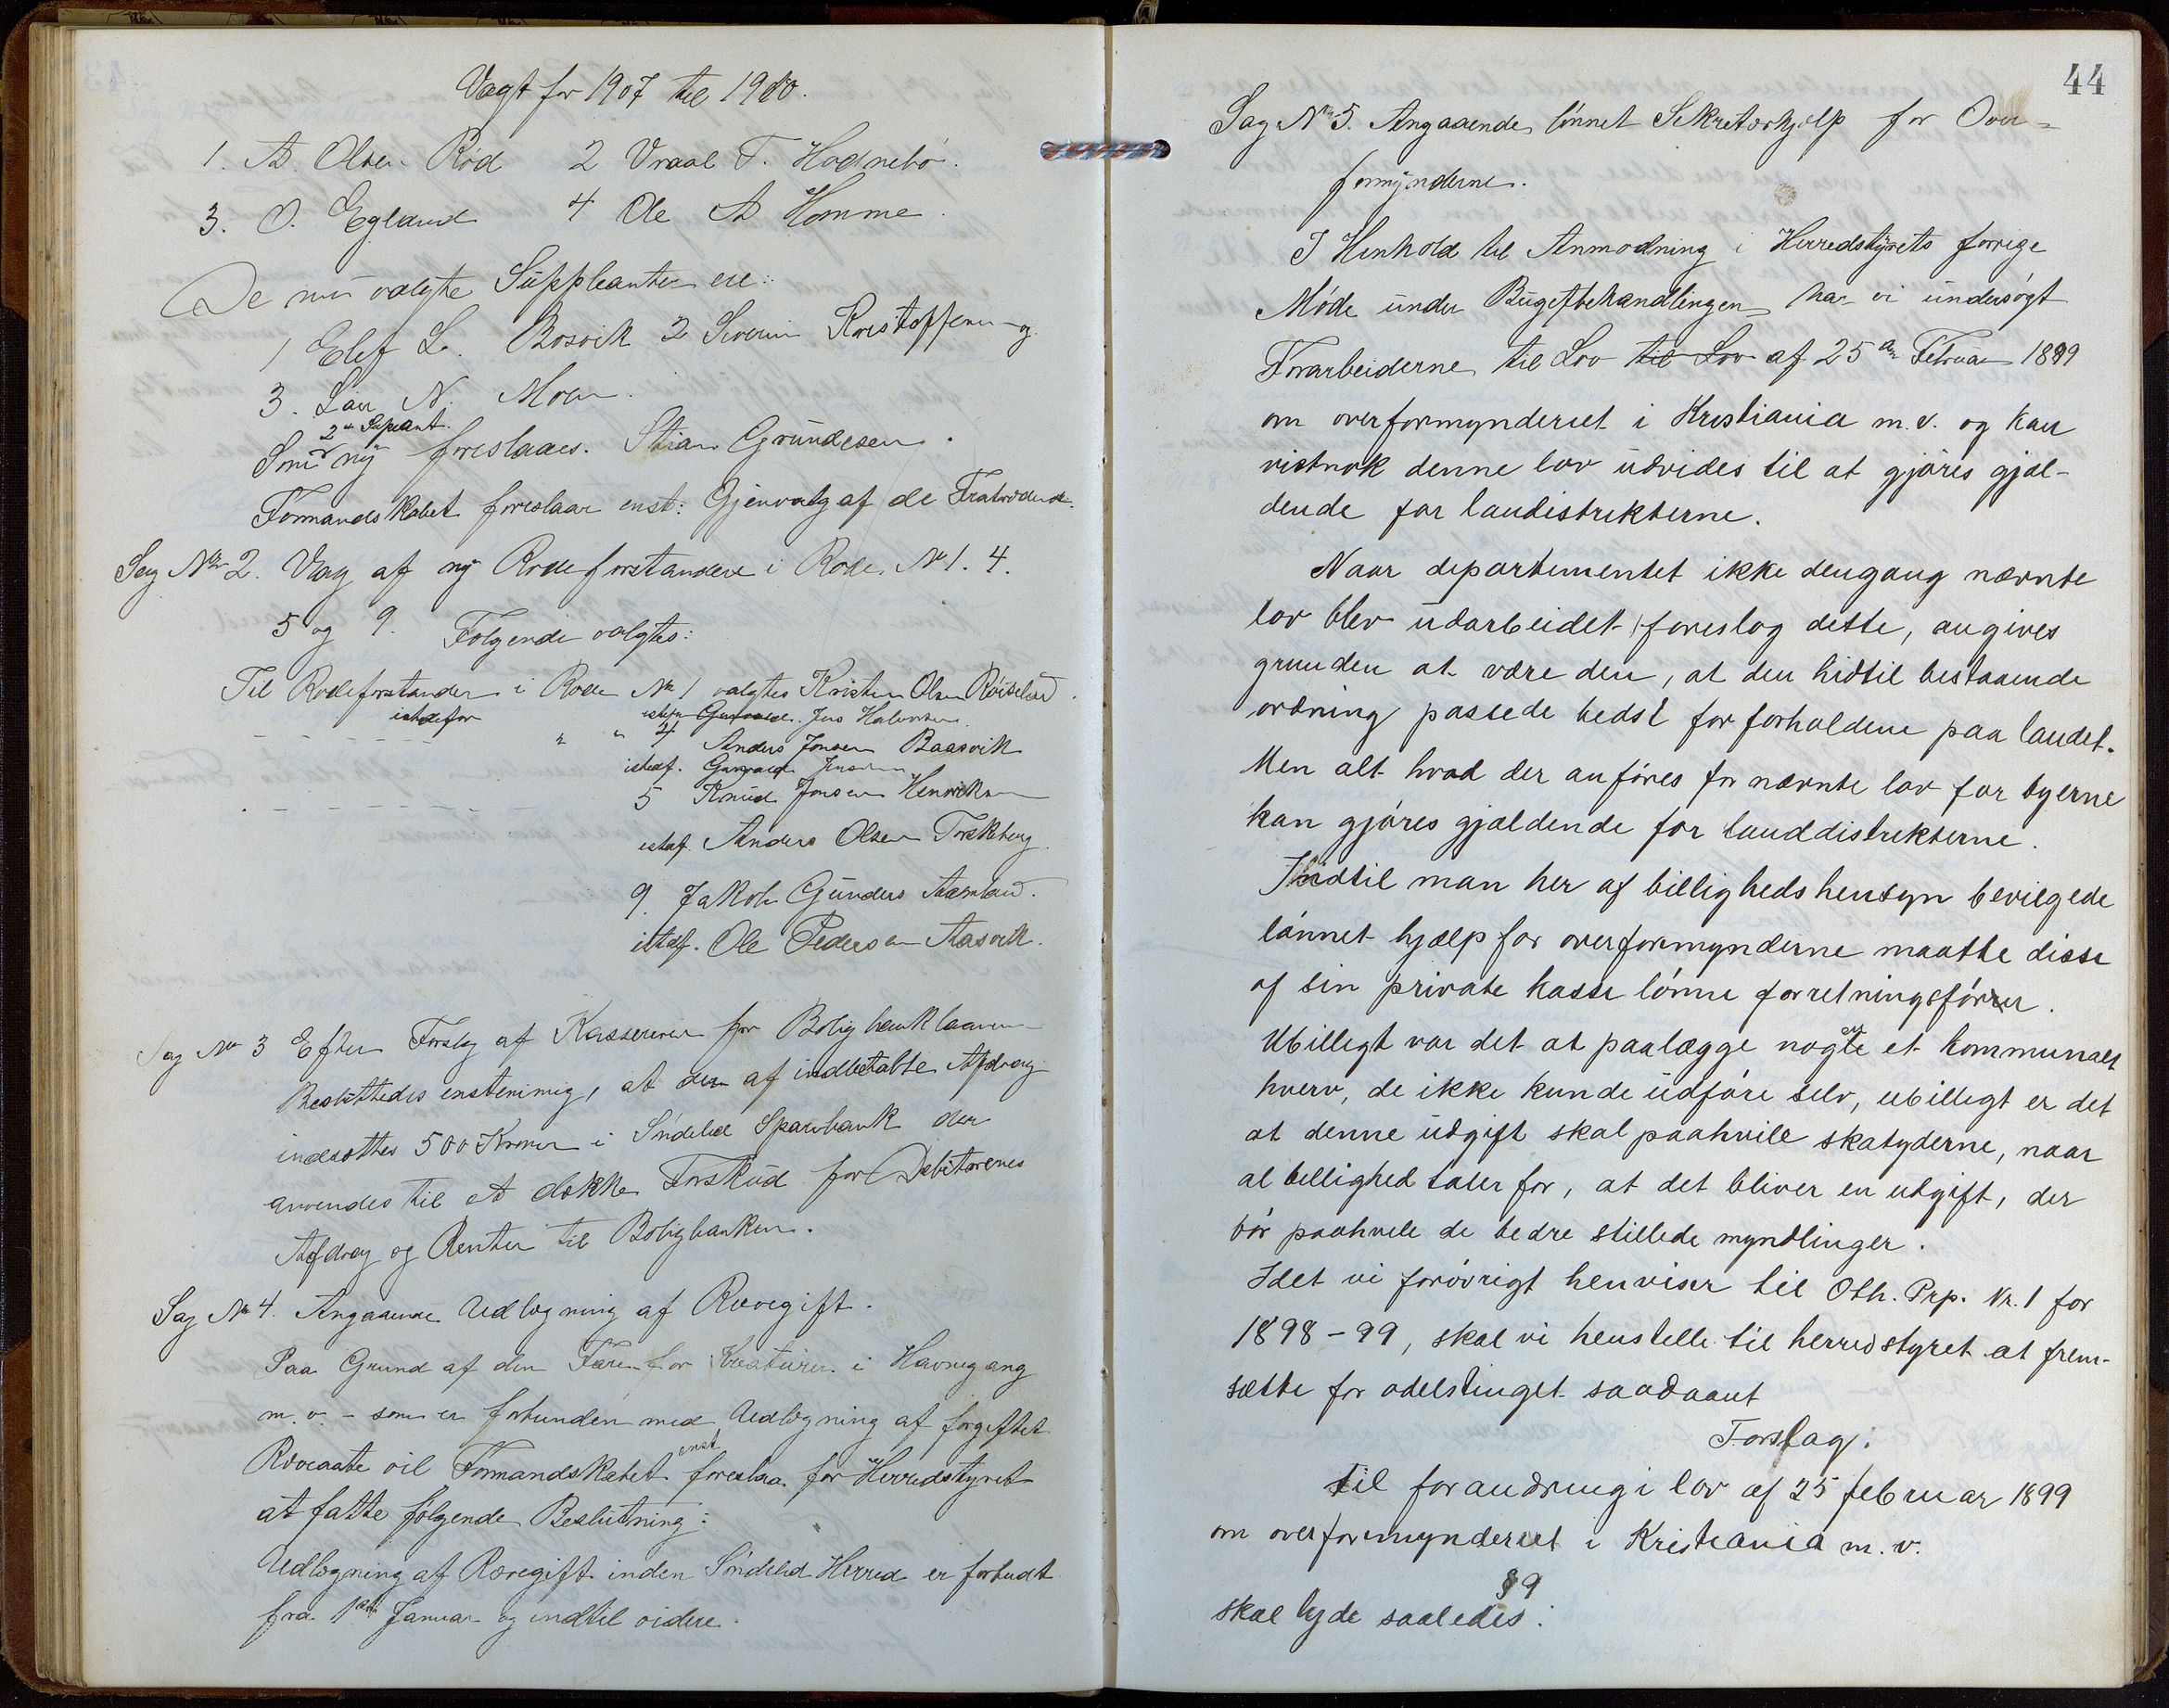 Vagt for 1907 til 1910.
1. A. Olsen Röd 2 Vraal T. Hodnebö.
3. O. Egland 4 Ole A Homme.
De nu valgte Suppleanter ere:
1 Elef L. Bosvik 2 Severin Kristoffersen og
3. Lars N. Moen.
2den Supeant.
Som ny foreslaaes. Stian Grundesen.
Formandskabet foreslaar enst: Gjenvalg af de Fratrædende.
Sag No 2. Valg af ny Rodeforstandere i Rode No 1. 4.
5 og 9. Følgende valgtes:
Til Rodeforstander i Rode No 1 valgtes Kristen Olsen Röiseland.
istedefor istefr Jens Halvorsen.
" " 4 Anders Jonsen Baasvik
istedf. Gunvald Jensen
5 Knud Jonsen Henriksen
istedf. Anders Olsen Torskberg.
9. Jakob Gunders Aamland.
istedf. Ole Pedersen Aasvik.
Sag No 3 Efter Forslag af Kassereren for Boligbanklaanene
Besluttedes enstemmig, at der af indbetalte Afdrag
indsættes 500 Kroner i Söndeled Sparebank der
anvendes til at dække Forskud for Debitorenes
Afdrag og Renter til Boligbanken.
Sag No 4. Angaaende Udlægning af Rævegift.
Paa Grund af den Fare for Kreaturer i Havnegang
m. v. - som er forbunden med Udlægning af forgiftet
Ræveaate vil Formandskabet enst foreslaa for Herredstyret
at fatte følgende Beslutning:
Udlægning af Rævegift inden Söndeled Herred er forbudt
fra 1ste Januar og indtil videre.
44
Sag No 5. Angaaende lönnet Sekretærhjelp for Over=
formynderne.
I Henhold til Anmodning i Herredstyrets forrige
Möde under Bugetbehandlingen har vi undersögt
Forarbeiderne til Lov til Lov af 25de Februar 1899
om overformynderiet i Kristiania m.v. og kan
vistnok denne lov udvides til at gjöres gjæl-
dende for landistrikterne.
Naar departementet ikke dengang nævnte
lov blev udarbeidet foreslog dette, angives
grunden at være den, at den hidtil bestaaende
ordning passede bedst for forholdene paa landet.
Men alt hvad der anföres for nævnte lov for byerne
kan gjöres gjældende for landdistrikterne.
Indtil man her af billighedshensyn bevilgede
lönnet hjælp for overformynderne maatte disse
af sin private kasse lönne forretningsförer.
Ubilligt var det at paalægge nogle et kommunalt
hverv, de ikke kunde udföre selv, ubilligt er det
at denne udgift skal paahvile skatyderne, naar
al billighed taler for, at det bliver en udgift, der
bör paahvile de bedre stillede myndlinger.
Idet vi forövrigt henviser til Oth. Prp. Nr. 1 for
1898-99, skal vi henstille til herredstyret at frem-
sætte for odelstinget saadaant
Forslag:
til forandring i lov af 25 februar 1899
om overformynderiet i Kristiania m.v.
§ 9
skal lyde saaledes: